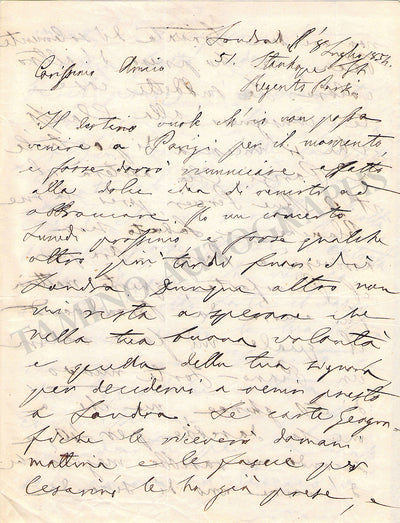 Londra 8 Luglio 1854.
Carissimo Amico 51. Stanhope St
Regents Park
Il destino vuole ch'io non possa
venire a Parigi per il momento
e forse dovrò rinunciare affatto
alla dolce idea di venirti ad
abbracciare. Ho un concerto
Lunedì prossimo e forse qualche
altro più tardi fuori di
Londra Dunque altro non
mi resta a sperare che
nella tua buona volontà
e quella della tua signora
per decidervi a venir presto
a Londra. Le carte Geogra-
fiche le riceverò domani
mattina e le fascie per
Cesarino le ho già prese, e
TAMINO AUTOGRAPHS